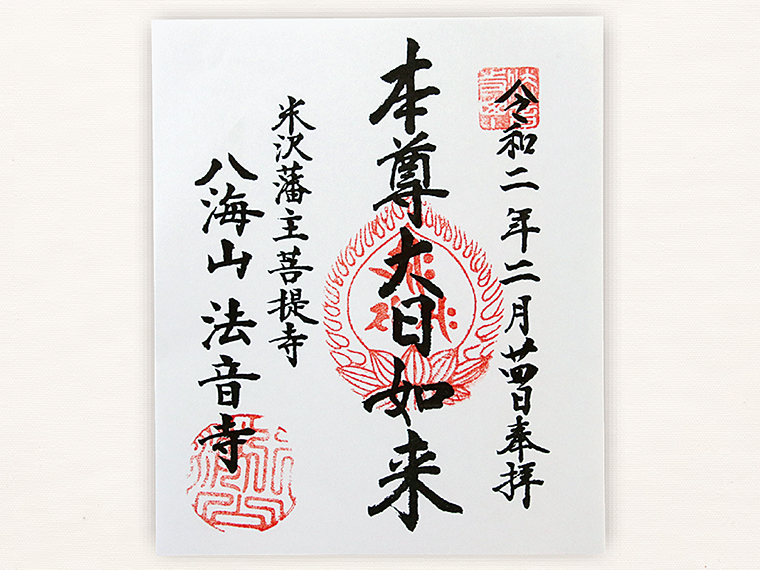 令和二年二月廿四日奉拝
本尊大日如来
米沢藩主菩提寺
八海山法音寺